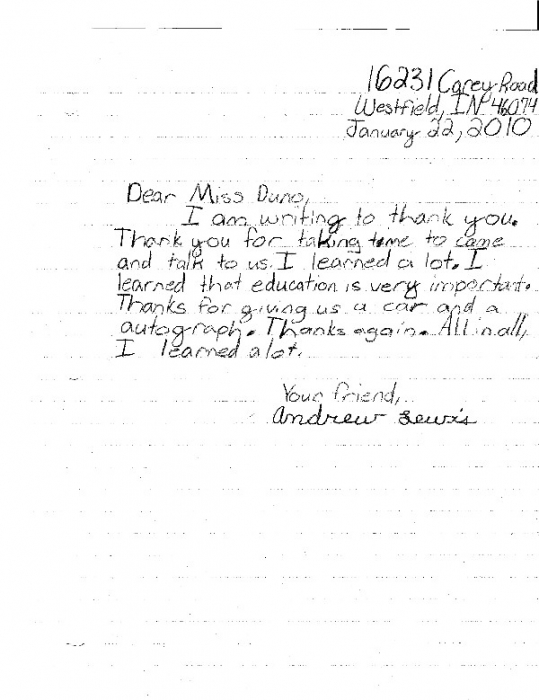 16231 Carey Road
Westfield, IN 46074
January 22, 2010
Dear Miss Duno,
I am writing to thank you.
Thank you for taking time to came
and talk to us. I learned a lot. I
learned that education is very important.
Thanks for giving us a car and a
autograph. Thanks again. All in all,
I learned a lot.
Your friend,
Andrew Lewis